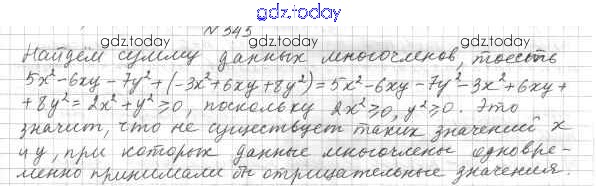 gdz.today
№ 545
gdz.today gdz.today
Найдём сумму данных многочленов, тоесть
5x²-6xy-7y²+(-3x²+6xy+8y²)=5x²-6xy-7y²-3x²+6xy+
+8y²=2x²+y²≥0, поскольку 2x²≥0, y²≥0. Это
значит, что не существует таких значений x
и y, при которых данные многочлены одновре-
менно принимали бы отрицательные значения.
gdz.today gdz.today
gdz.today